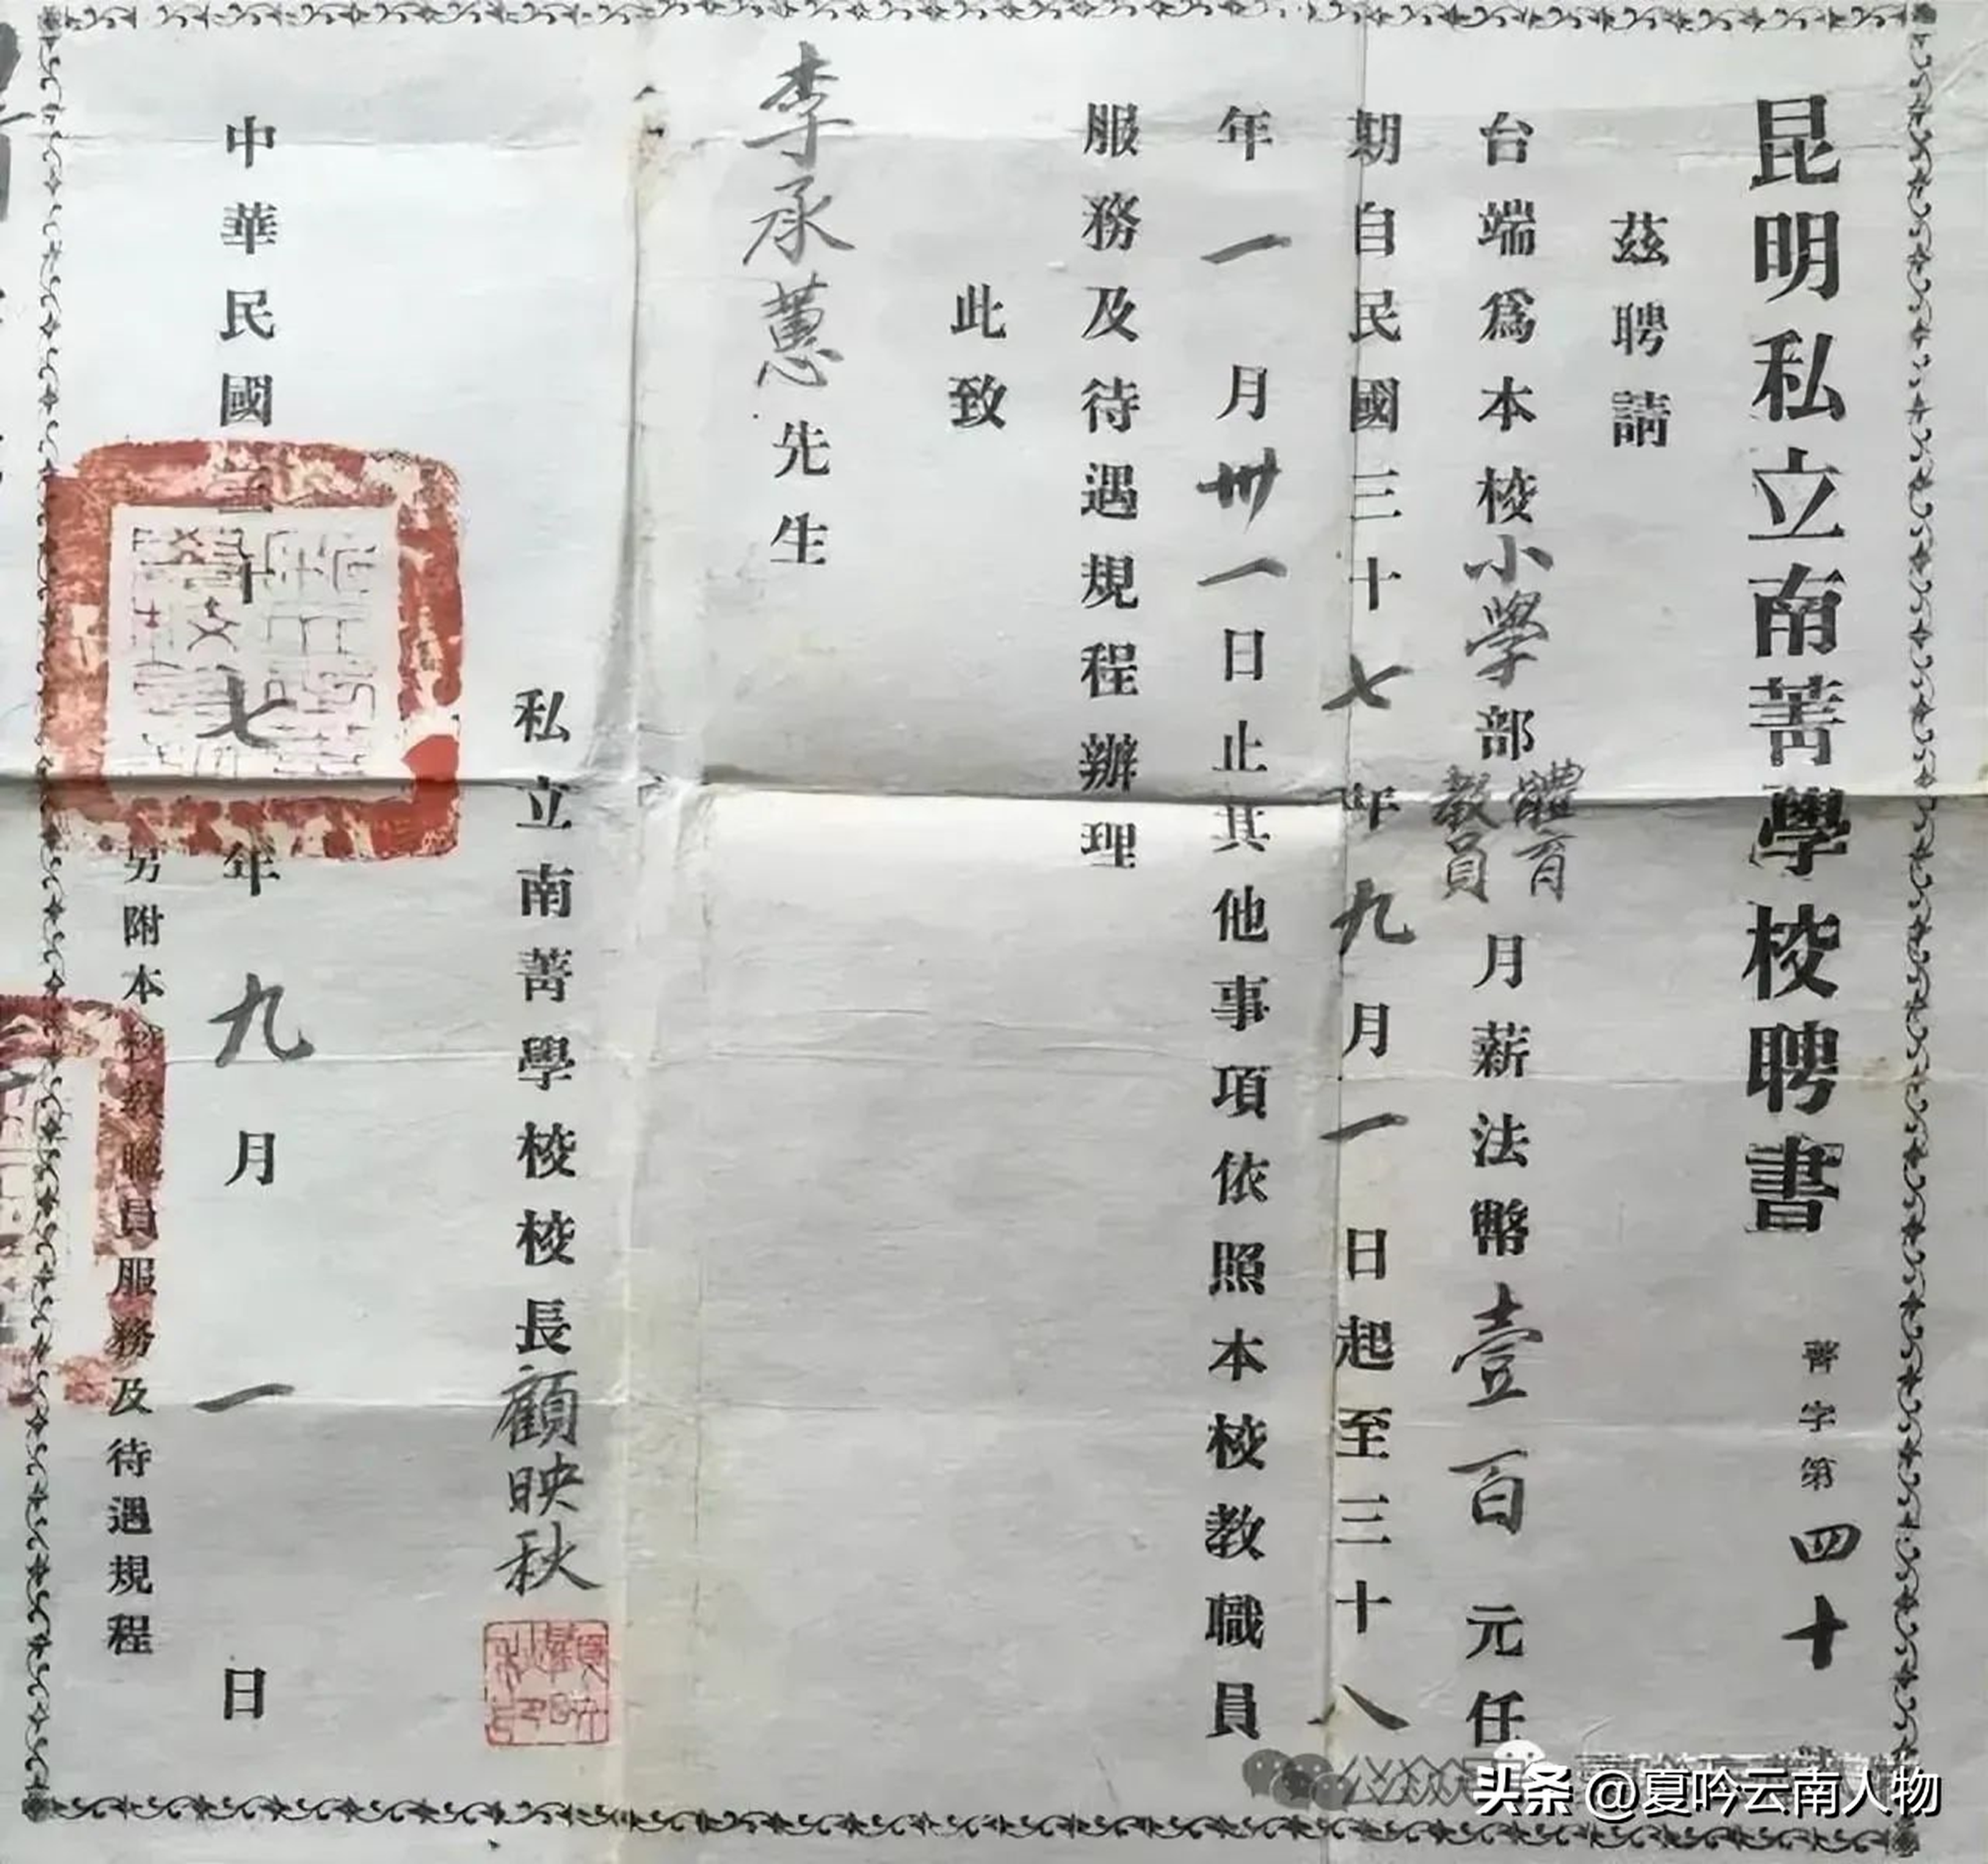 昆明私立南菁學校聘書
菁字第四十號
茲聘請
台端爲本校小學部體育教員月薪法幣壹百元任
期自民國三十七年九月一日起至三十八
年一月卅一日止其他事項依照本校教職員
服務及待遇規程辦理
此致
李承蕙先生
私立南菁學校校長顧映秋
中華民國三十七年九月一日
另附本校教職員服務及待遇規程
头条 @夏吟云南人物